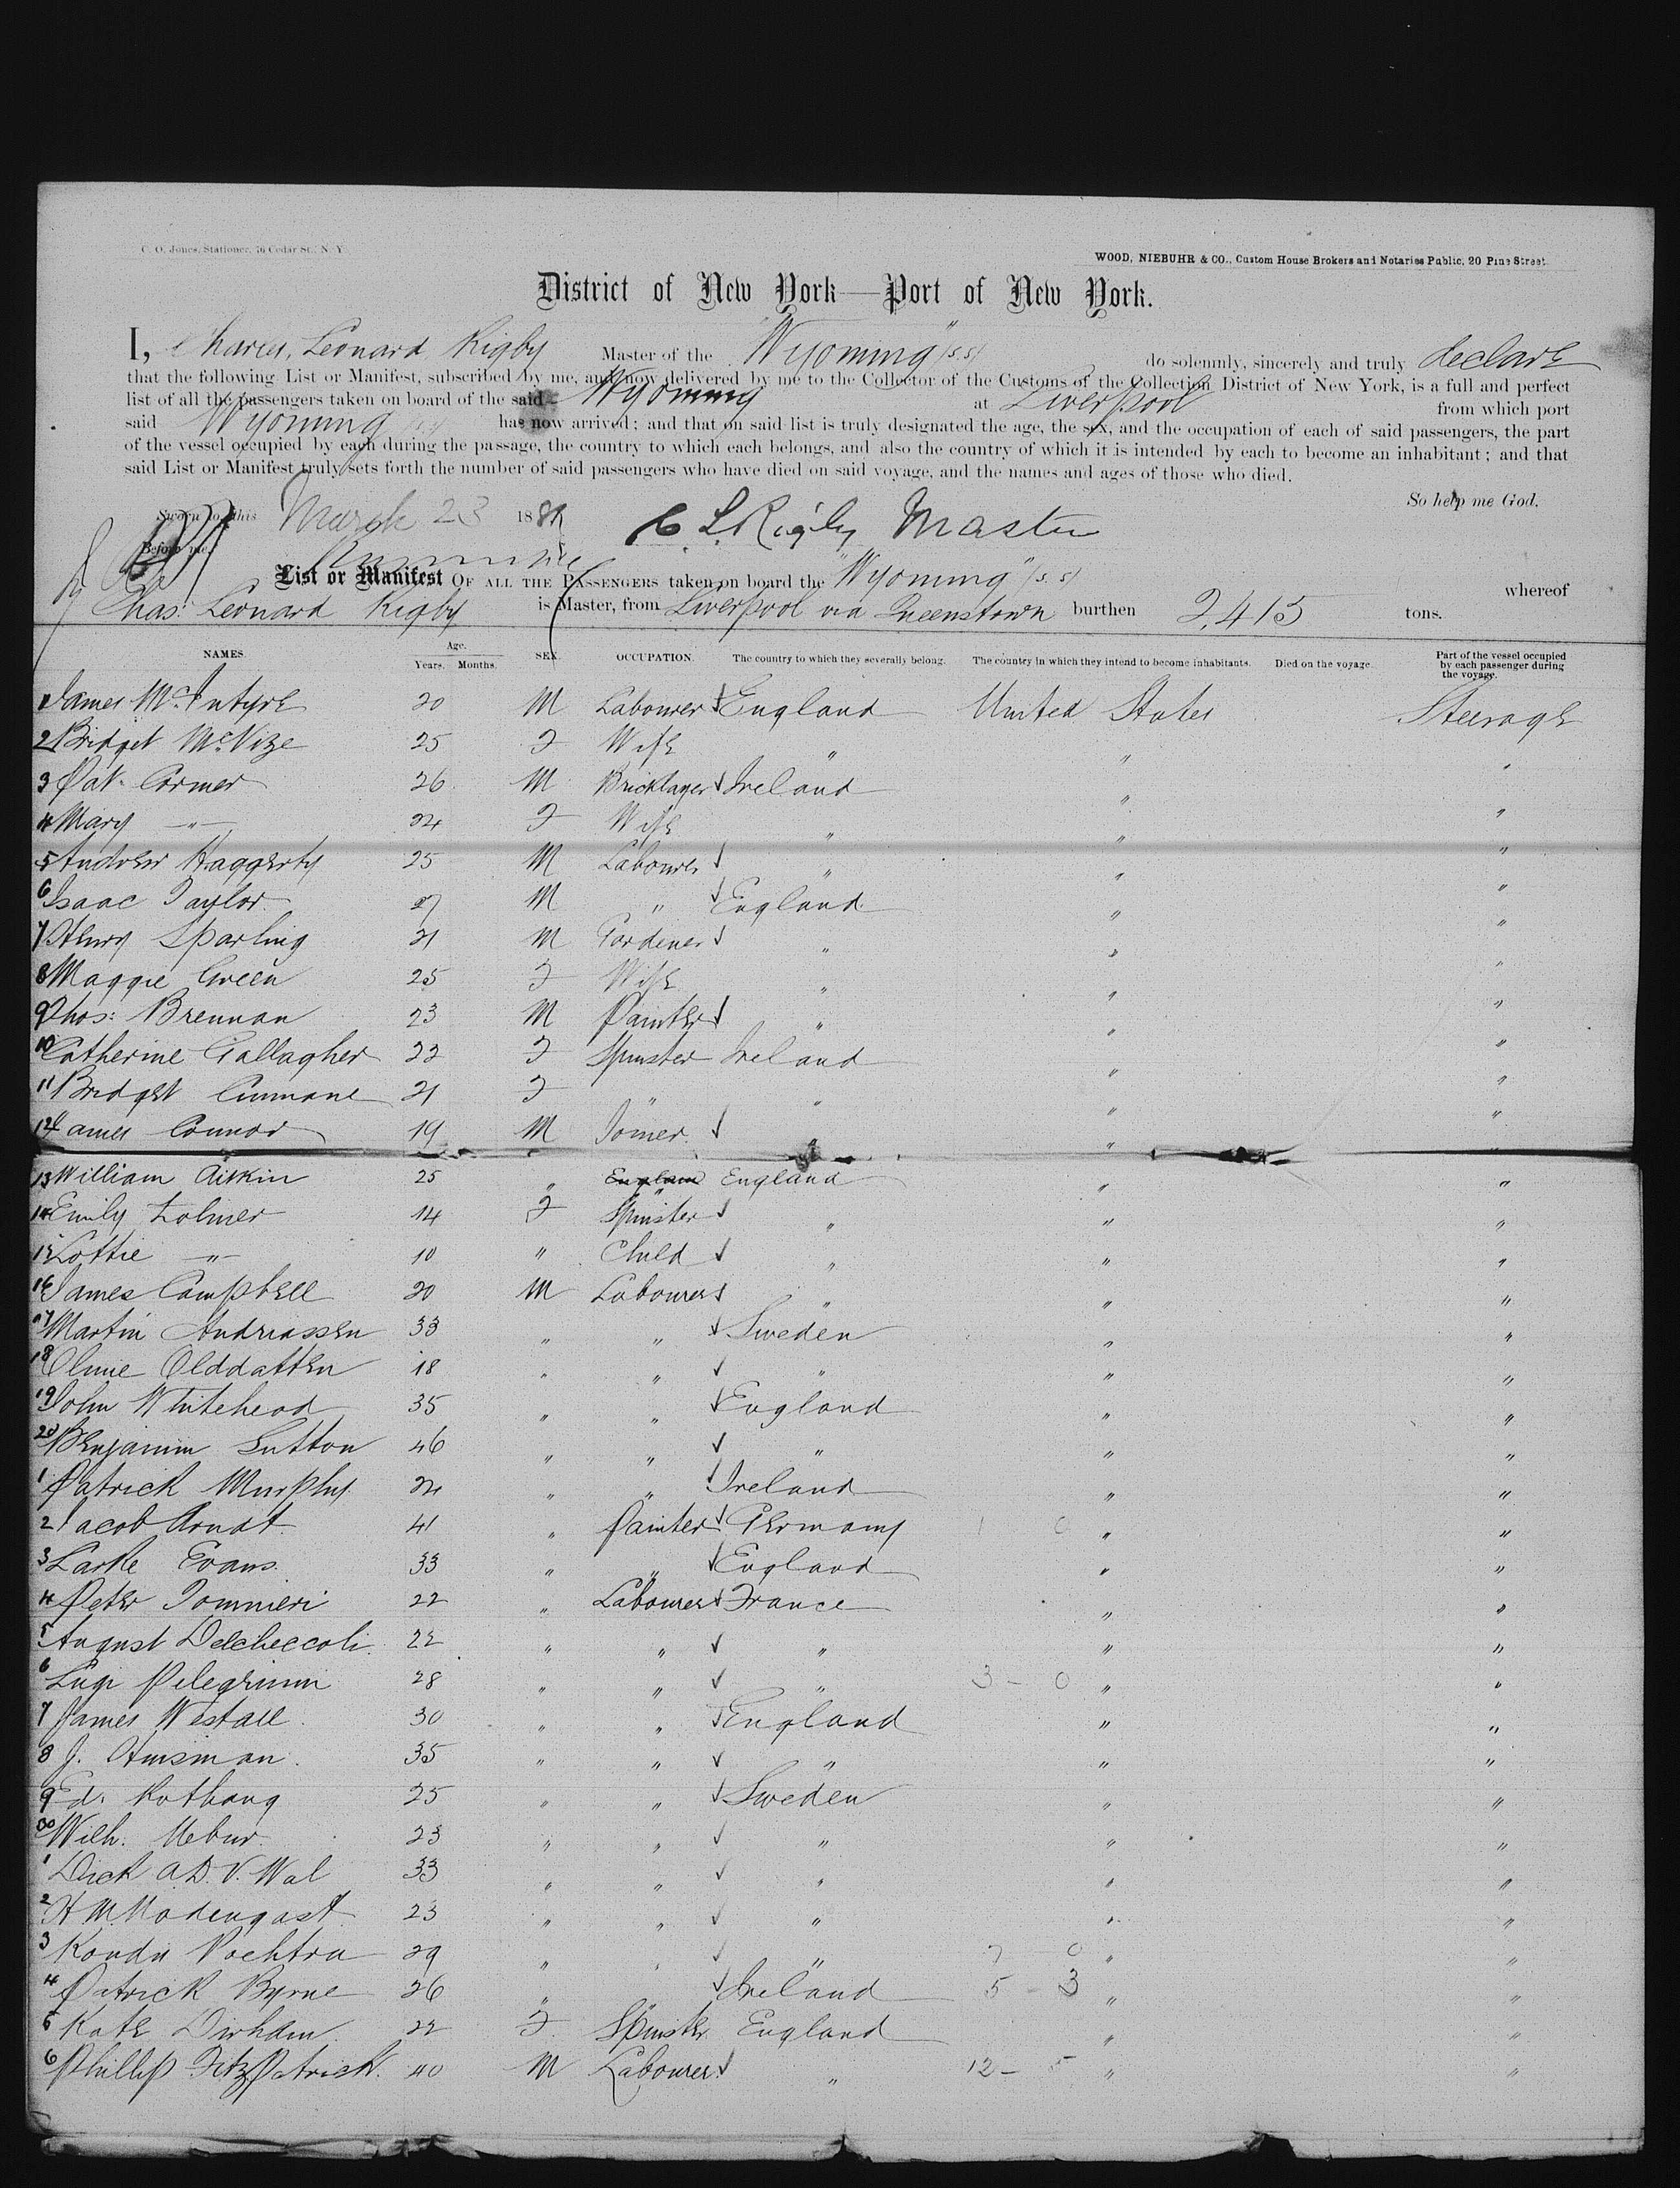 C. O. Jones, Stationer, 76 Cedar St., N. Y.
WOOD, NIEBUHR & CO., Custom House Brokers and Notaries Public, 20 Pine Street.
District of New York—Port of New York.
I, Charles Leonard Rigby Master of the "Wyoming" (s.s) do solemnly, sincerely and truly declare
that the following List or Manifest, subscribed by me, and now delivered by me to the Collector of the Customs of the Collection District of New York, is a full and perfect
list of all the passengers taken on board of the said Wyoming at Liverpool from which port
said Wyoming has now arrived; and that on said list is truly designated the age, the sex, and the occupation of each of said passengers, the part
of the vessel occupied by each during the passage, the country to which each belongs, and also the country of which it is intended by each to become an inhabitant; and that
said List or Manifest truly sets forth the number of said passengers who have died on said voyage, and the names and ages of those who died.
So help me God.
Sworn to this March 23 188
C L Rigby Master
Before me,
List or Manifest OF ALL THE PASSENGERS taken on board the "Wyoming" (s.s) whereof
Chas: Leonard Rigby is Master, from Liverpool via Queenstown burthen 2,415 tons.
NAMES. Age. Years. Months. SEX. OCCUPATION. The country to which they severally belong. The country in which they intend to become inhabitants. Died on the voyage. Part of the vessel occupied by each passenger during the voyage.
1 James McIntyre 20 M Labourer England United States Steerage
2 Bridget McVize 25 F Wife " " "
3 Pat. Cormer 26 M Bricklayer Ireland " "
4 Mary —"— 24 F Wife " " "
5 Andrew Haggerty 25 M Labourer " " "
6 Isaac Taylor 27 M " England " "
7 Henry Sparling 21 M Gardener " " "
8 Maggie Green 25 F Wife " " "
9 Thos: Brennan 23 M Painter " " "
10 Catherine Gallagher 22 F Spinster Ireland " "
11 Bridget Cunnane 21 F " " " "
12 James Connor 19 M Joiner " " "
13 William Aitkin 25 " England England " "
14 Emily Lolmer 14 F Spinster " " "
15 Lottie —"— 10 " Child " " "
16 James Campbell 20 M Labourer " " "
17 Martin Andriassen 33 " " Sweden " "
18 Olune Olddatten 18 " " " " "
19 John Whitehead 35 " " England " "
20 Benjamin Sutton 46 " " " " "
1 Patrick Murphy 24 " " Ireland " "
2 Jacob Arndt 41 " Painter Germany " "
3 Larke Evans 33 " " England " "
4 Peter Tomnieri 22 " Labourer France " "
5 August Delcheccoli 22 " " " " "
6 Lugi Pelegrinni 28 " " " 3 – 0 " "
7 James Westall 30 " " England " "
8 J. Hinsman 35 " " " " "
9 Ed. Rothang 25 " " Sweden " "
30 Wilh. Mebur 23 " " " " "
1 Dirk A.D.V. Wal 33 " " " " "
2 H M Madengast 23 " " " " "
3 Kondu Pochtra 29 " " " 7 0 " "
4 Patrick Byrne 26 " " Ireland 5 – 3 " "
5 Kate Dirham 22 F Spinster England " "
6 Phillip FitzPatrick 40 M Labourer " 12 – 5 " "